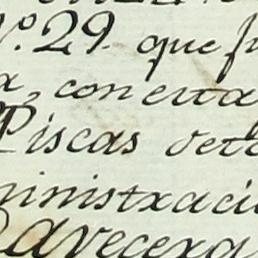 Nº. 29. que fu
a, con esta
Piscas dela
ministraci
Lavecera